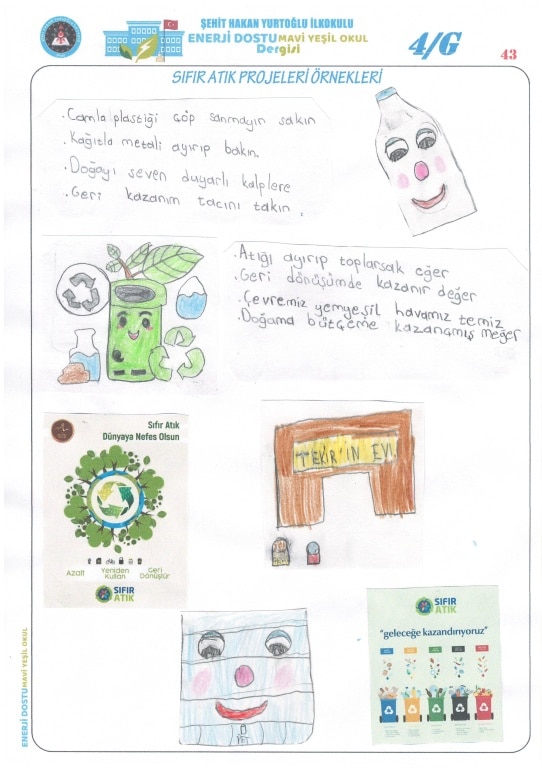 ŞEHİT HAKAN YURTOĞLU İLKOKULU
ENERJİ DOSTU MAVİ YEŞİL OKUL
Dergisi
4/G
43
SIFIR ATIK PROJELERİ ÖRNEKLERİ
.Camla plastiği çöp sanmayın sakın
.Kağıtla metali ayırıp bakın.
.Doğayı seven duyarlı kalplere
.Geri kazanım tacını takın.
.Atığı ayırıp toplarsak eğer
.Geri dönüşümde kazanır değer
.Çevremiz yemyeşil havamız temiz
.Doğama bütçeme kazançmış meğer
Sıfır Atık
Dünyaya Nefes Olsun
Azalt
Yeniden Kullan
Geri Dönüştür
SIFIR
ATIK
TEKİR'İN EVİ
SIFIR
ATIK
"geleceğe kazandırıyoruz"
ENERJİ DOSTU MAVİ YEŞİL OKUL